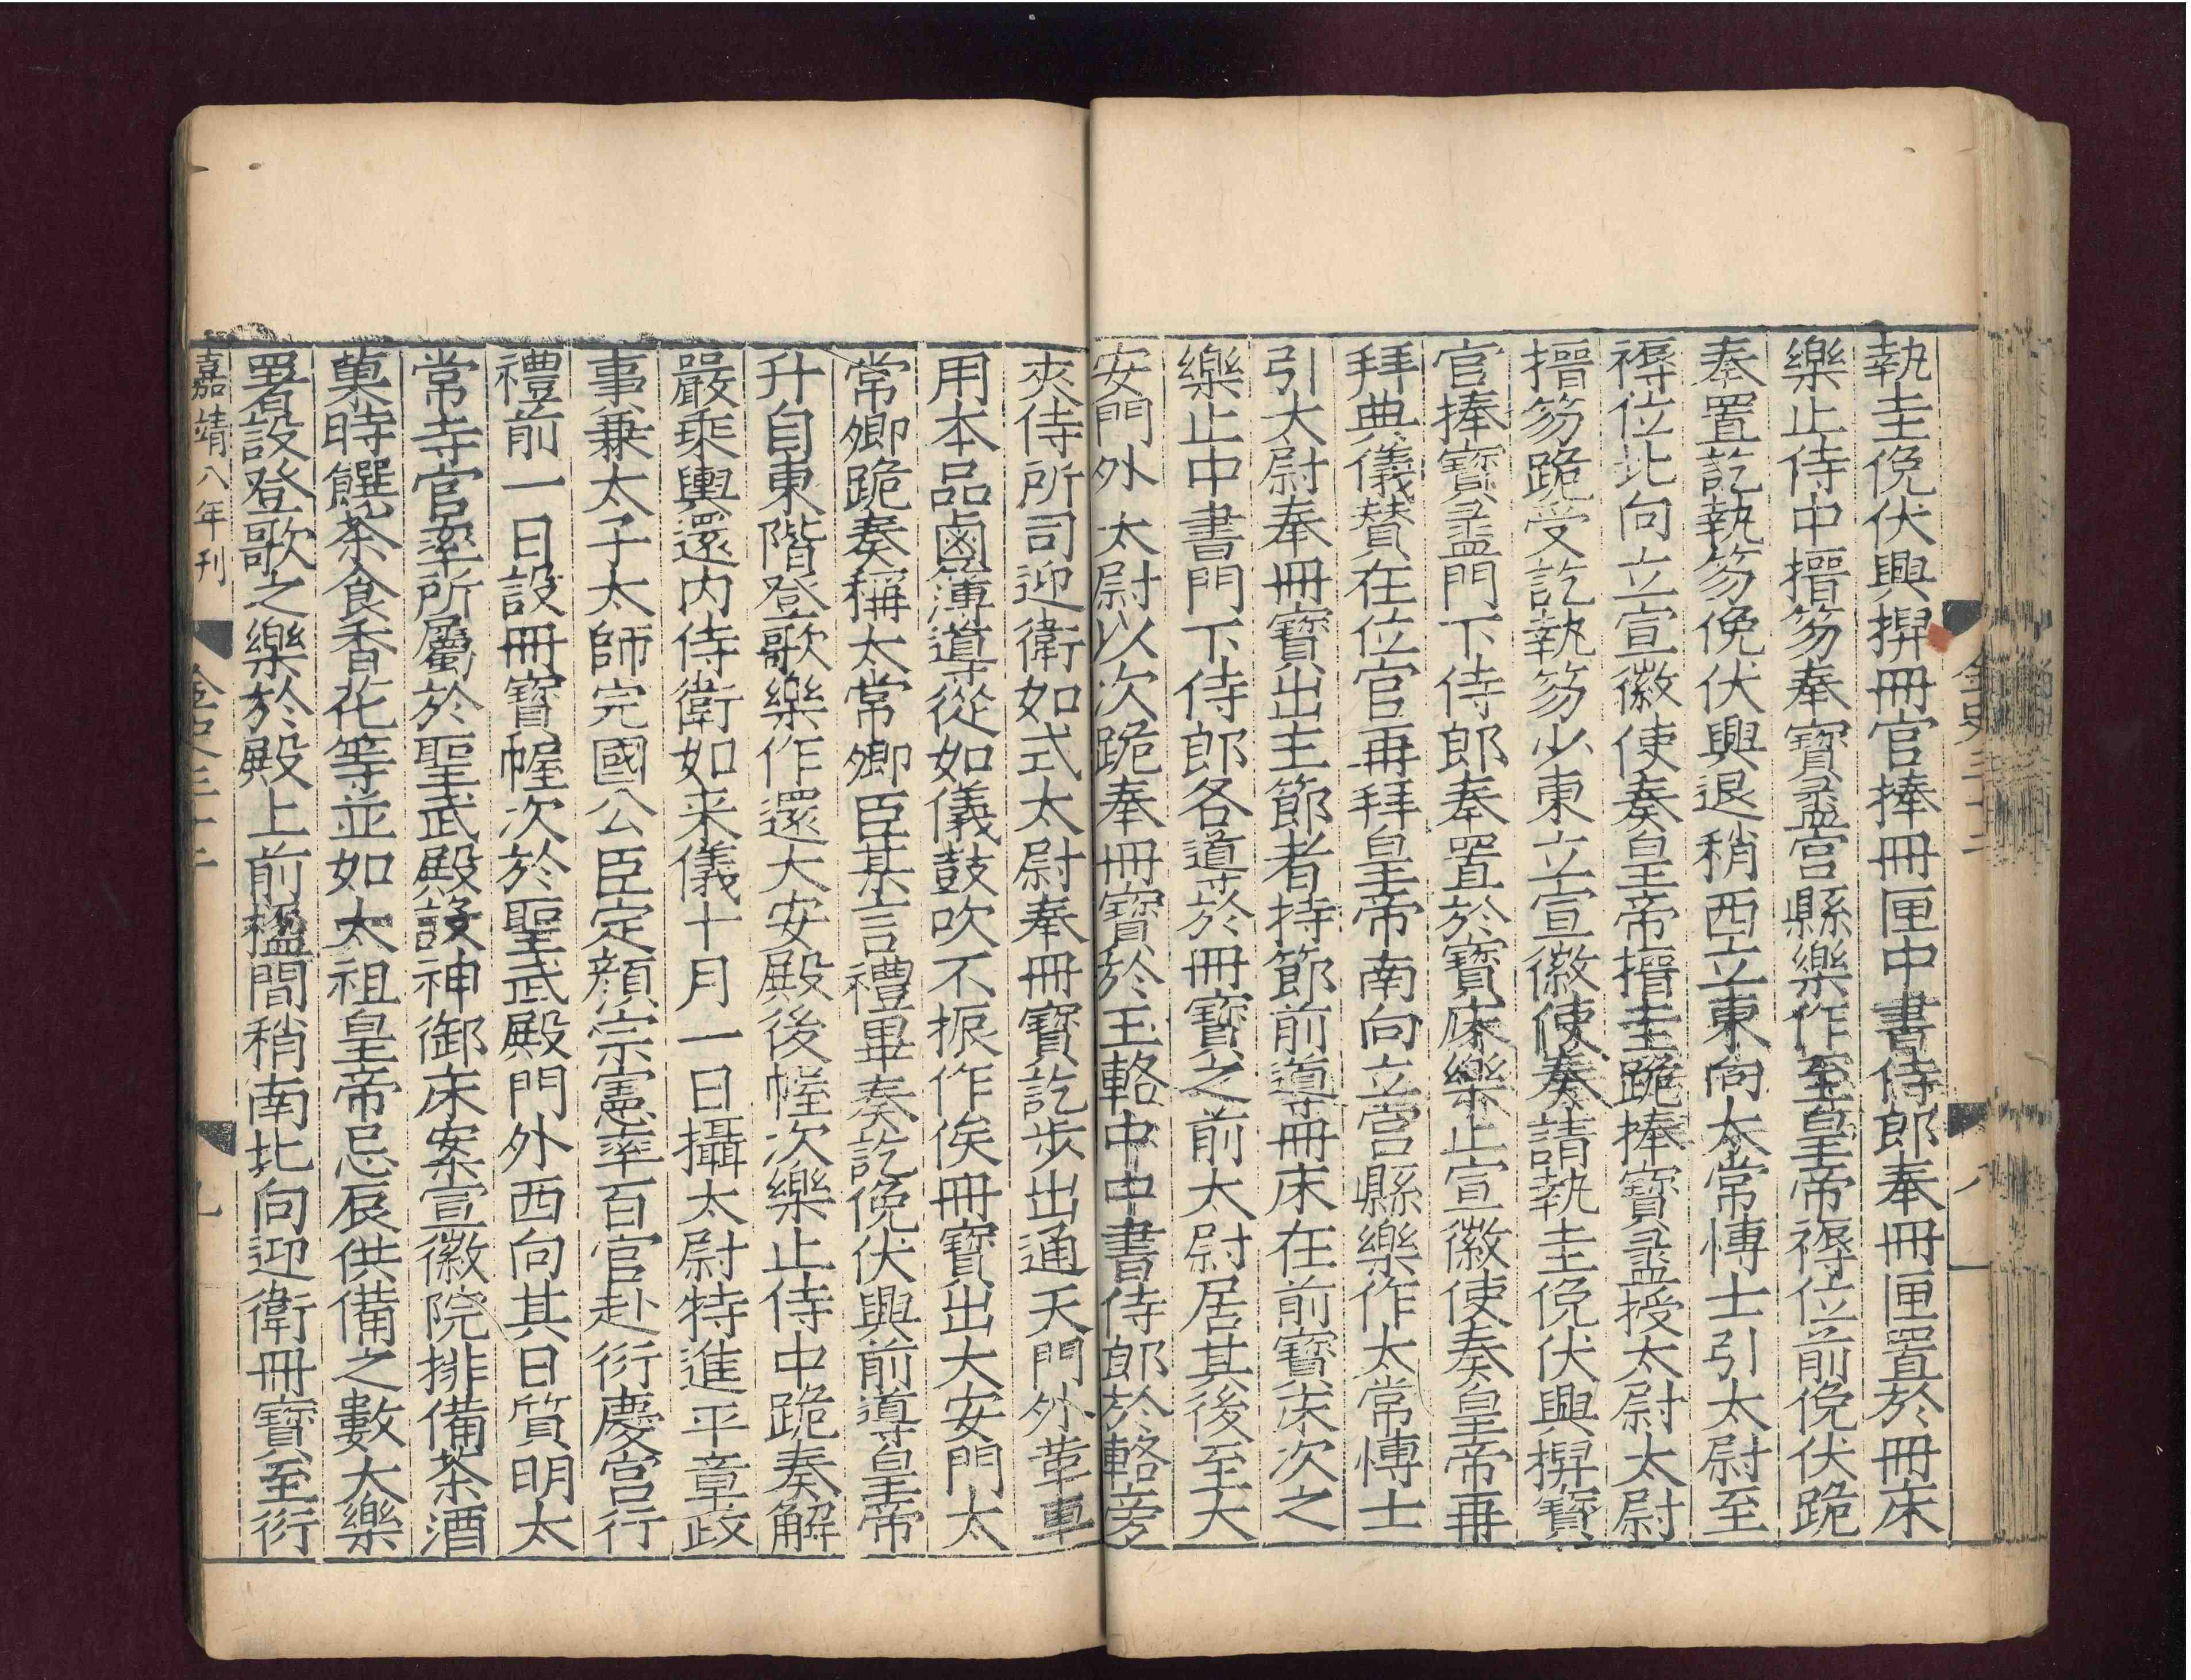 執圭俛伏興搢冊官捧冊匣中書侍郎奉冊匣置於冊床
樂止侍中搢笏奉寶盝宮縣樂作至皇帝褥位前俛伏跪
奉置訖執笏俛伏興退稍西立東向太常博士引太尉至
褥位北向立宣徽使奏皇帝搢圭跪捧寶盝授太尉太尉
搢笏跪受訖執笏少東立宣徽使奏請執圭俛伏興捧寶
官捧寶盝門下侍郎奉置於寶床樂止宣徽使奏皇帝再
拜典儀贊在位官再拜皇帝南向立宮縣樂作太常博士
引太尉奉冊寶出主節者持節前導冊床在前寶床次之
樂止中書門下侍郎各導於冊寶之前太尉居其後至大
安門外太尉以次跪奉冊寶於玉輅中中書侍郎於輅旁
夾侍所司迎衛如式太尉奉冊寶訖步出通天門外革車
用本品鹵簿導從如儀鼓吹不振作俟冊寶出大安門太
常卿跪奏稱太常卿臣某言禮畢奏訖俛伏興前導皇帝
升自東階登歌樂作還大安殿後幄次樂止侍中跪奏解
嚴乘輿還内侍衛如来儀十月一日攝太尉特進平章政
事兼太子太師完國公臣定顏宗憲率百官赴衍慶宮行
禮前一日設冊寶幄次於聖武殿門外西向其日質明太
常寺官率所屬於聖武殿設神御床案宣徽院排備茶酒
菓時饌茶食香花等並如太祖皇帝忌辰供備之數大樂
署設登歌之樂於殿上前楹間稍南北向迎衛冊寶至衍
嘉靖八年刊
金史三十二
九
金史三十二
八